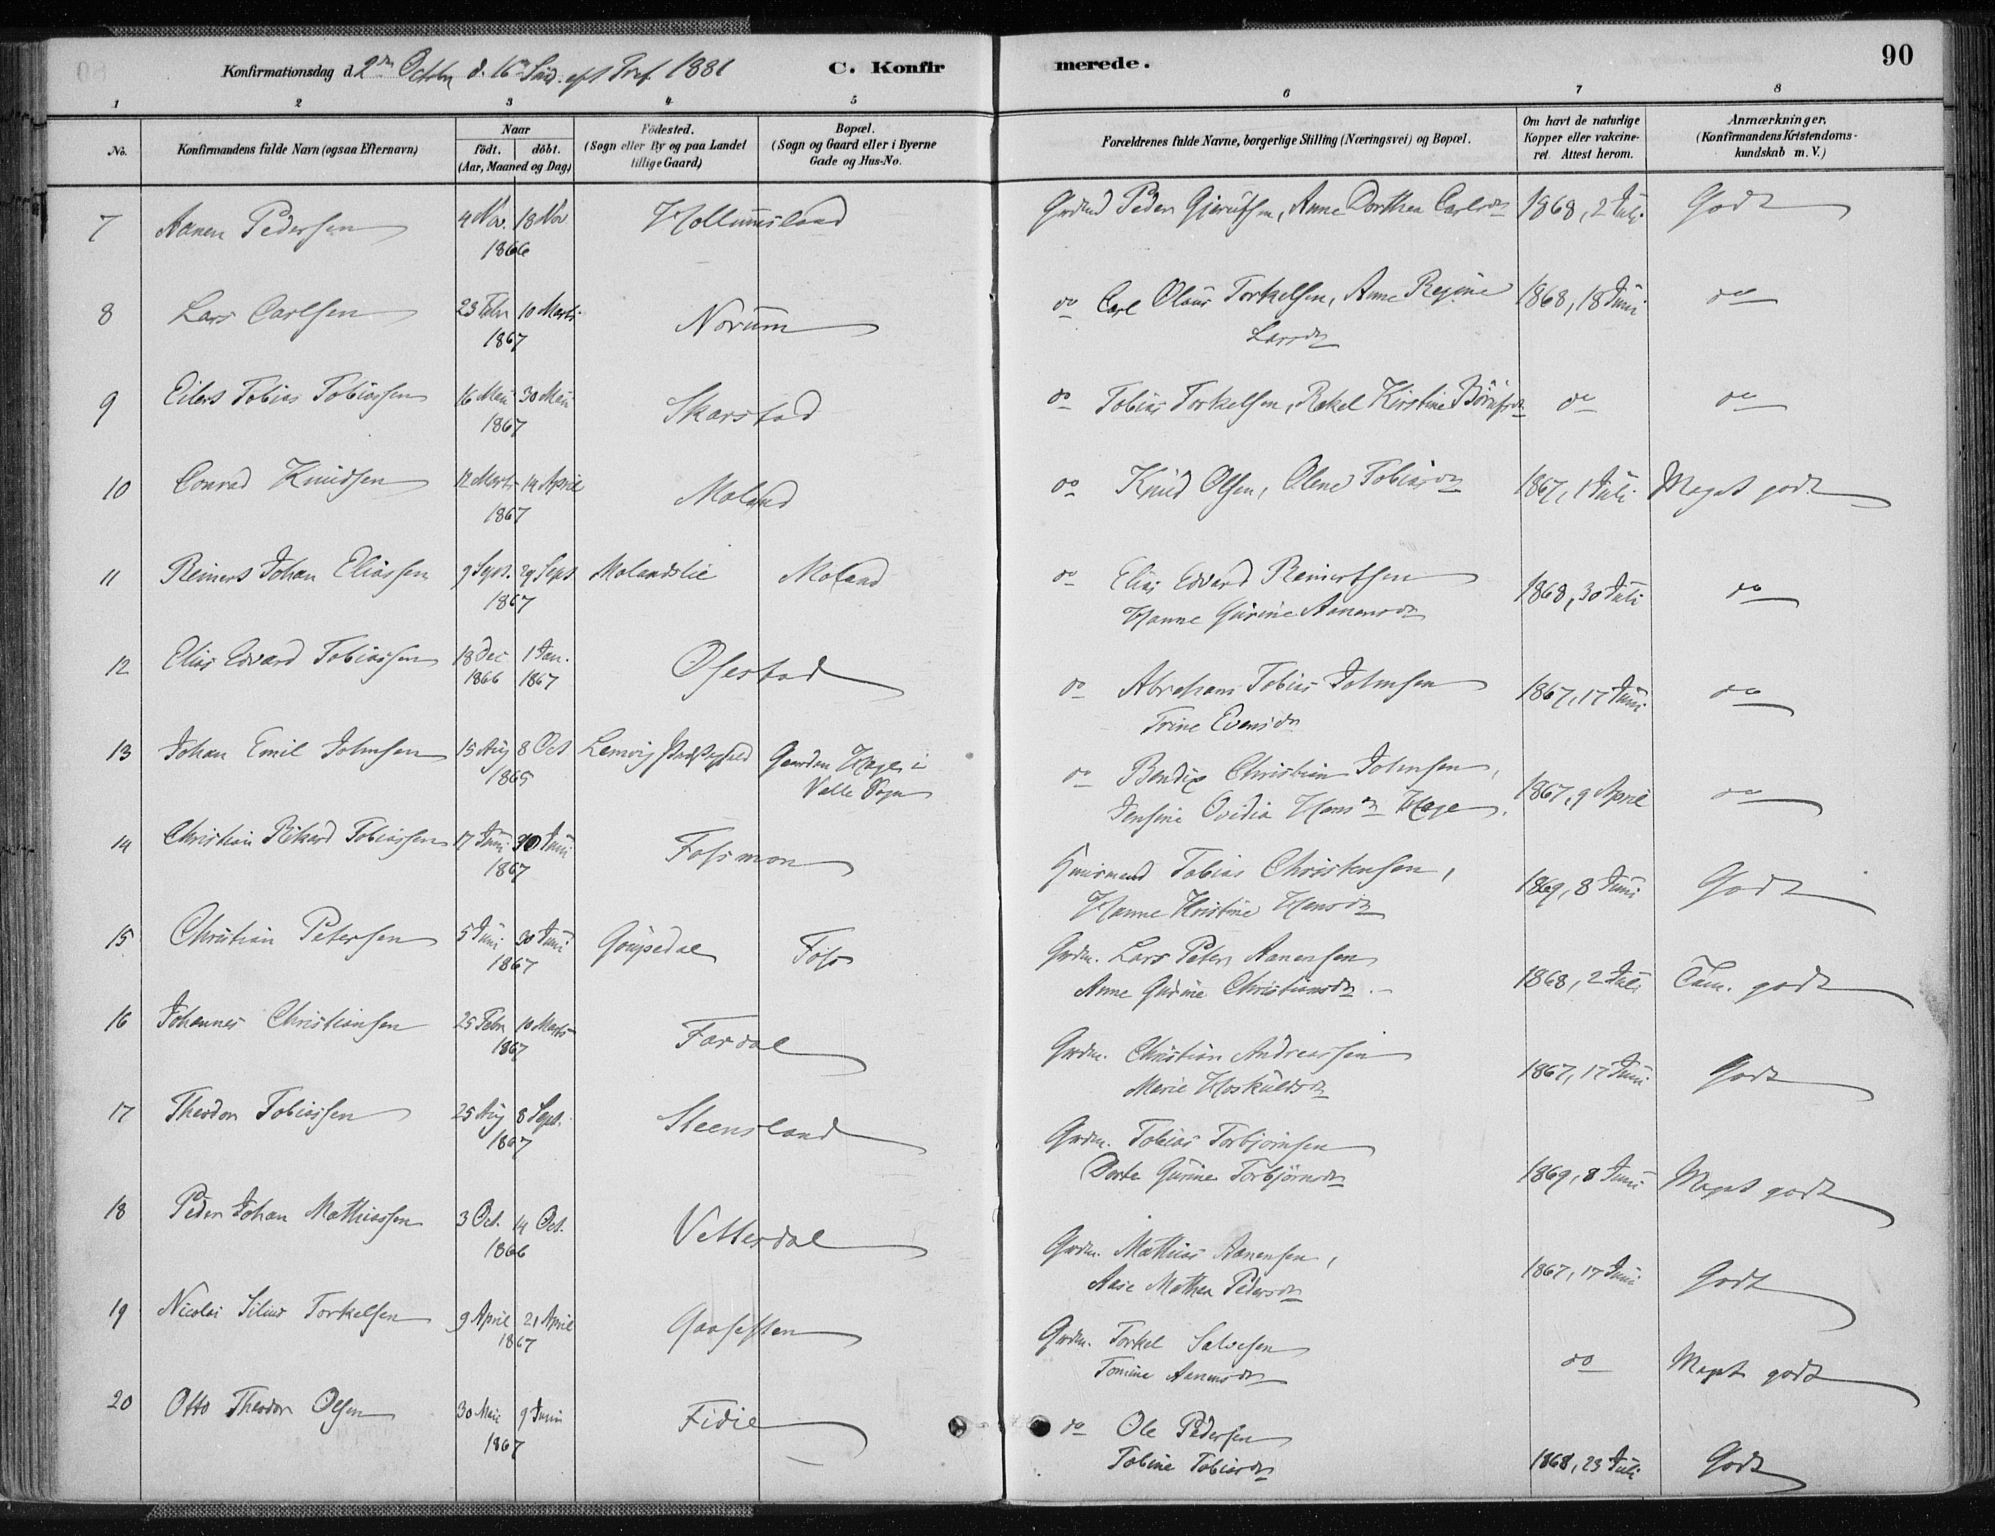 Konfirmationsdag d. 2den Octbr d. 16de Sød. eft Tref. 1881
C. Konfirmerede.
90
1 2 3 4 5 6 7 8
No.
Konfirmandens fulde Navn (ogsaa Efternavn)
Naar
født. døbt.
(Aar, Maaned og Dag)
Födested.
(Sogn eller By og paa Landet
tillige Gaard)
Bopæl.
(Sogn og Gaard eller i Byerne
Gade og Hus-No.
Forældrenes fulde Navne, borgerlige Stilling (Næringsvei) og Bopæl.
Om havt de naturlige
Kopper eller vakcine-
ret. Attest herom.
Anmærkninger.
(Konfirmandens Kristendoms-
kundskab m. V.)
7 Aanen Pedersen 4 Nov. 18 Nov Hollumsland Grdmd Peder Gjerulfsen, Anne Dorthea Carlsdr 1868, 2 Juli Godt
1866
8 Lars Carlsen 23 Febr 10 Marts Norum do Carl Olaus Torkelsen, Anne Regine 1868, 18 Juni do
1867 Larsdr
9 Eilert Tobias Tobiassen 16 Mai 30 Mai Skarstad do Tobias Torkelsen, Rakel Kirstine do do
1867
10 Conrad Knudsen 12 Marts 14 April Moland do Knud Olsen, Olene Tobiasdr 1867, 1 Juli Meget godt
1867
11 Reinert Johan Eliassen 9 Sept. 29 Sept Molandslie Moland do Elias Edvard Reinertsen 1868, 30 Juli do
1867 Hanne Gurine Aanensdr
12 Elias Edvard Tobiassen 18 Dec 1 Jan. Øfstad do Abraham Tobias Johnsen 1867, 17 Juni do
1866 1867 Trine Evensdr
13 Johan Emil Johnsen 15 Aug 8 Oct Lemvig Gaarden Hage i do Bendix Christian Johnsen, 1867, 9 April do
1865 Valle Sogn Jensine Ovidia Hansdr Hage.
14 Christian Rikard Tobiassen 17 Juni 30 Juni Fossmon Huusmand Tobias Christensen, 1869, 8 Juni Godt
1867 Hanne Kristine Hansdr
15 Christian Petersen 5 Juni 30 Juni Foss Grdm. Lars Peter Aanensen 1868, 2 Juli Tem. godt
1867 Anne Gurine Christiansdr
16 Johannes Christiansen 25 Febr 10 Marts Fardal Grdm. Christian Andreassen 1867, 17 Juni Godt
1867 Marie Hoskuldsdr
17 Theodor Tobiassen 25 Aug 8 Sept. Steensland Grdm. Tobias Torbjørnsen
1867 Dorte Gurine Torbjørnsdr 1869, 8 Juni Meget godt
18 Peder Johan Mathiassen 3 Oct. 14 Oct. Vetterdal Grdm. Mathias Aanensen, 1867, 17 Juni Godt
1866 Aase Mathea Pedersdr
19 Nicolai Silius Torkelsen 9 April 21 April Grdm. Torkel Salvesen do Meget godt
1867 Tomine Aanensdr
20 Otto Theodor Olsen 30 Mai 9 Juni Fidie do Ole Pedersen
1867 Tobine Tobiasdr 1868, 23 Juli Godt